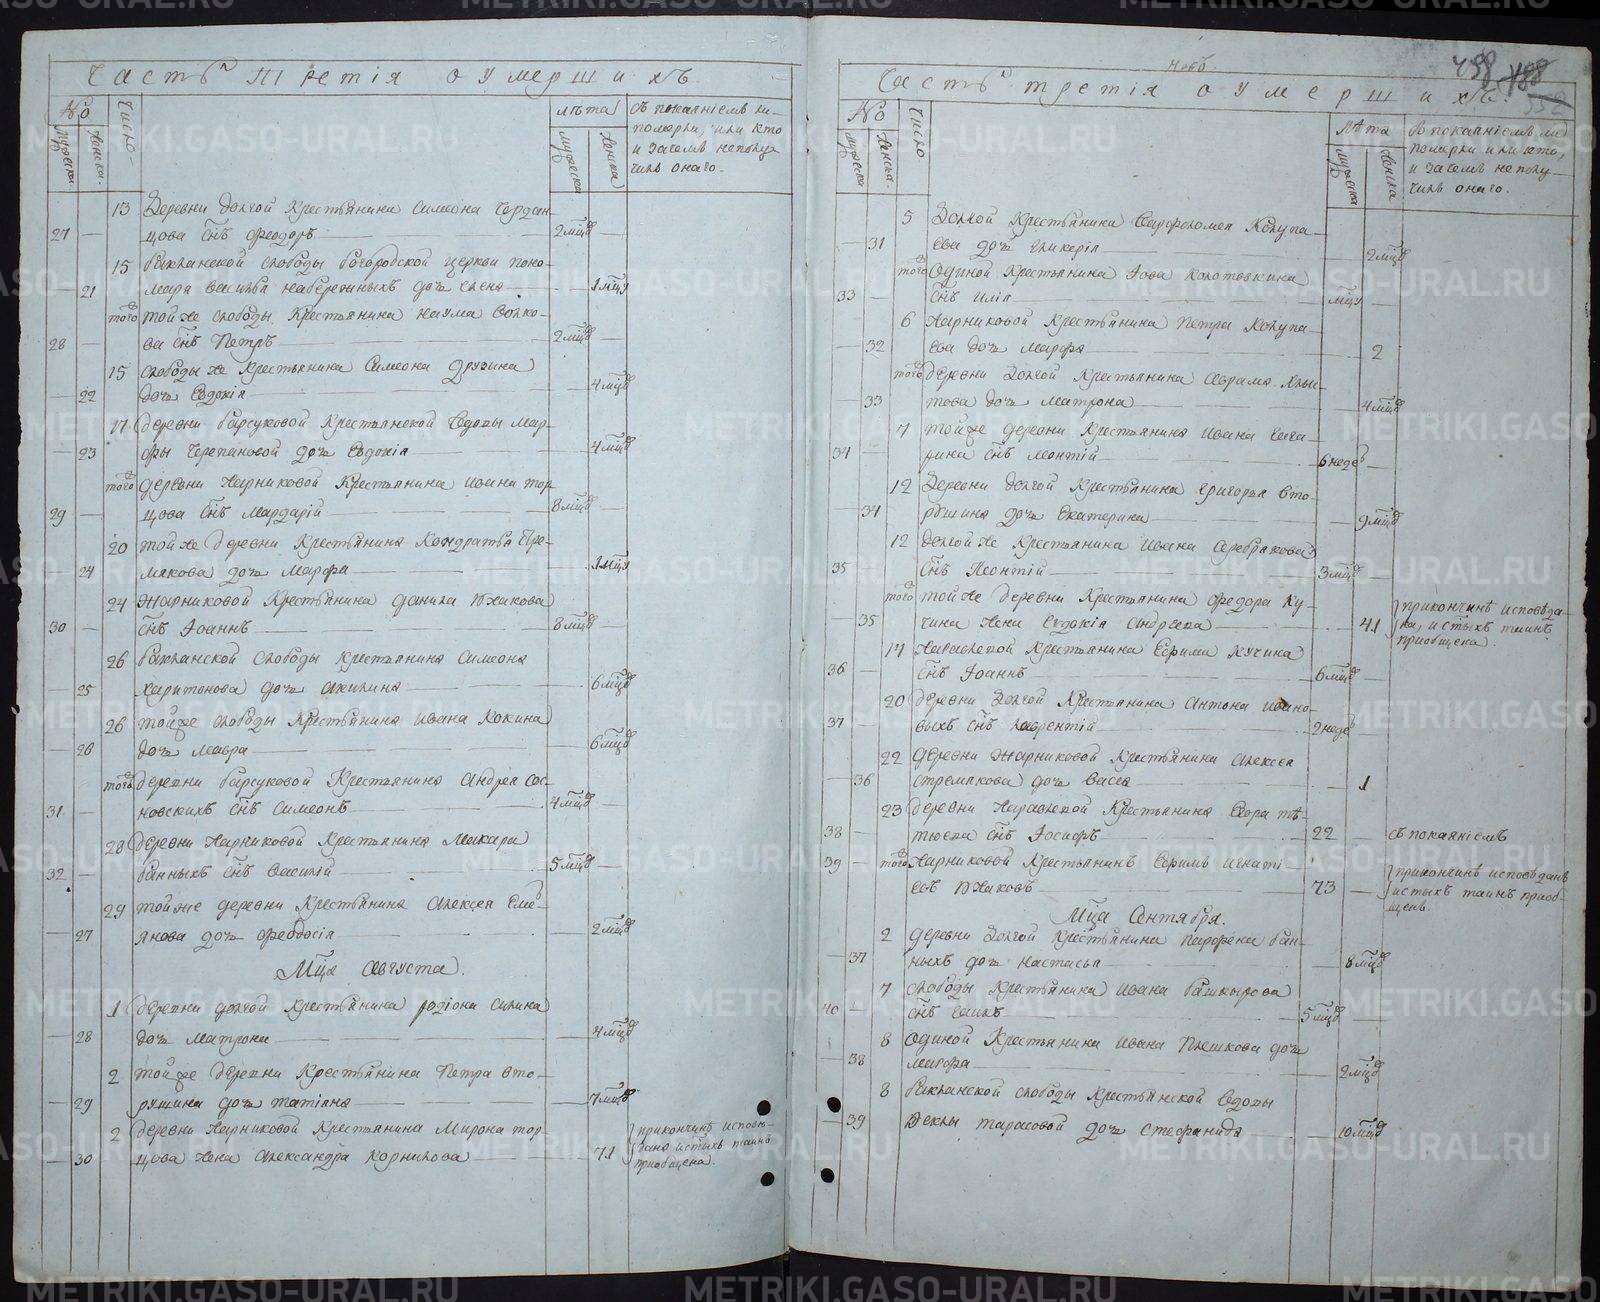 Часть третія о умершихъ.
№
Мужеска.
Женска.
Число.
лѣта
мужеска
женска
Съ покаяніемъ ли
померли, или кто
и зачемъ неполу-
чилъ онаго.
13 Деревни Долгой Крестьянина Симеона
27 — цова сн҃ъ Феодоръ — 2 мцд
15 слободы Богородской церкви поно-
— 21 маря Василья Набережныхъ дочь Елена — 1 мцъ
того той же слободы Крестьянина Наума Волко-
28 — ва сн҃ъ Петръ — 2 мцд —
15 слободы же Крестьянина Симеона Дружина
— 22 дочь Евдокія — 4 мцд
17 деревни Барсуковой Крестьянской Мар-
— 23 фы Черепановой дочь Евдокія — 4 мцд
того деревни Жарниковой Крестьянина Ивана Тор-
29 — цова сн҃ъ Мардарій — 8 мцд —
20 той же деревни Крестьянина Кондратья Стре-
— 24 макова дочь Марфа — 1 мцъ
24 Жарниковой Крестьянина Данила Южакова
30 — сн҃ъ Іоаннъ — 8 мцд —
26 слободы Крестьянина Симеона
— 25 Харитонова дочь Акилина — 6 мцд
26 той же слободы Крестьянина Ивана Кокина
— 26 дочь Мавра — 6 мцд
того деревни Барсуковой Крестьянина Андрея Сос-
31 — новскихъ сн҃ъ Симеонъ — 4 мцд —
28 деревни Жарниковой Крестьянина Макара
32 — Банныхъ сн҃ъ Василій — 5 мцд —
29 той же деревни Крестьянина Алексея Емѣ-
— 27 янова дочь Феодосія — 2 мцд
Мц҃а Августа.
1 деревни Долгой Крестьянина Родіона Силина
— 28 дочь Матрона — 4 мцд
2 той же деревни Крестьянина Петра Вто-
— 29 рушина дочь Татіяна — 7 мцд
2 деревни Жарниковой Крестьянина Мирона Тор-
— 30 цова жена Александра Корнилова — 71
прикончинѣ исповѣ-
дана истыхъ таинъ
приобщена.
498
Часть третія о умершихъ.
№
Мужеска
Женска.
Число.
Лѣта
мужеска
женска
Съ покаяніемъ ли
померли или кто,
и зачемъ неполу-
чилъ онаго.
5 Долгой Крестьянина Варфоломея Колупа-
— 31 ева дочь Гликерія — 2 мцд
того Одиной Крестьянина Іова Колотовкина
33 — сн҃ъ Илія — мцъ —
6 Жарниковой Крестьянина Петра Колупа-
— 32 ева дочь Марфа — 2
того деревни Долгой Крестьянина Аврама
— 33 това дочь Матрона — 4 мцд
7 той же деревни Крестьянина Ивана
34 — рина сн҃ъ Леонтій — 6 недѣ —
12 Деревни Долгой Крестьянина Григорья Вто-
— 34 рушина дочь Екатерина — 9 мцд
12 Долгой же Крестьянина Ивана Серебрякова
35 — сн҃ъ Леонтій — 3 мцд —
того той же деревни Крестьянина Федора Ку-
— 35 чина жена Евдокія Андреева — 41
прикончинѣ исповѣда-
на, и стыхъ таинъ
приобщена.
17 Крестьянина Ефима Кучина
36 — сн҃ъ Іоаннъ — 6 мцд —
20 деревни Долгой Крестьянина Антона Ивано-
37 — выхъ сн҃ъ Лаврентій — 2 недѣ —
22 деревни Жарниковой Крестьянина Алексея
— 36 Стремакова дочь Васса — 1
23 деревни Крестьянина Егора тѣ-
38 — тюева сн҃ъ Іосифъ — 22 — съ покаяніемъ
39 — того Жарниковой Крестьянинъ Ефимъ Игнаті-
евъ Южаковъ — 73 —
прикончинѣ исповѣданъ
истыхъ таинъ приоб-
щенъ.
Мц҃а Сентября.
2 деревни Долгой Крестьянина Парфена Бан-
— 37 ныхъ дочь Настасья — 8 мцд
7 слободы Крестьянина Ивана Башкырова
40 — сн҃ъ — 5 мцд —
8 Одиной Крестьянина Ивана Плешкова дочь
— 38 Марфа — 2 мцд
8 слободы Крестьянской
— 39 Феклы Тарасовой дочь Стефанида — 10 мцд
METRIKI.GASO-URAL.RU